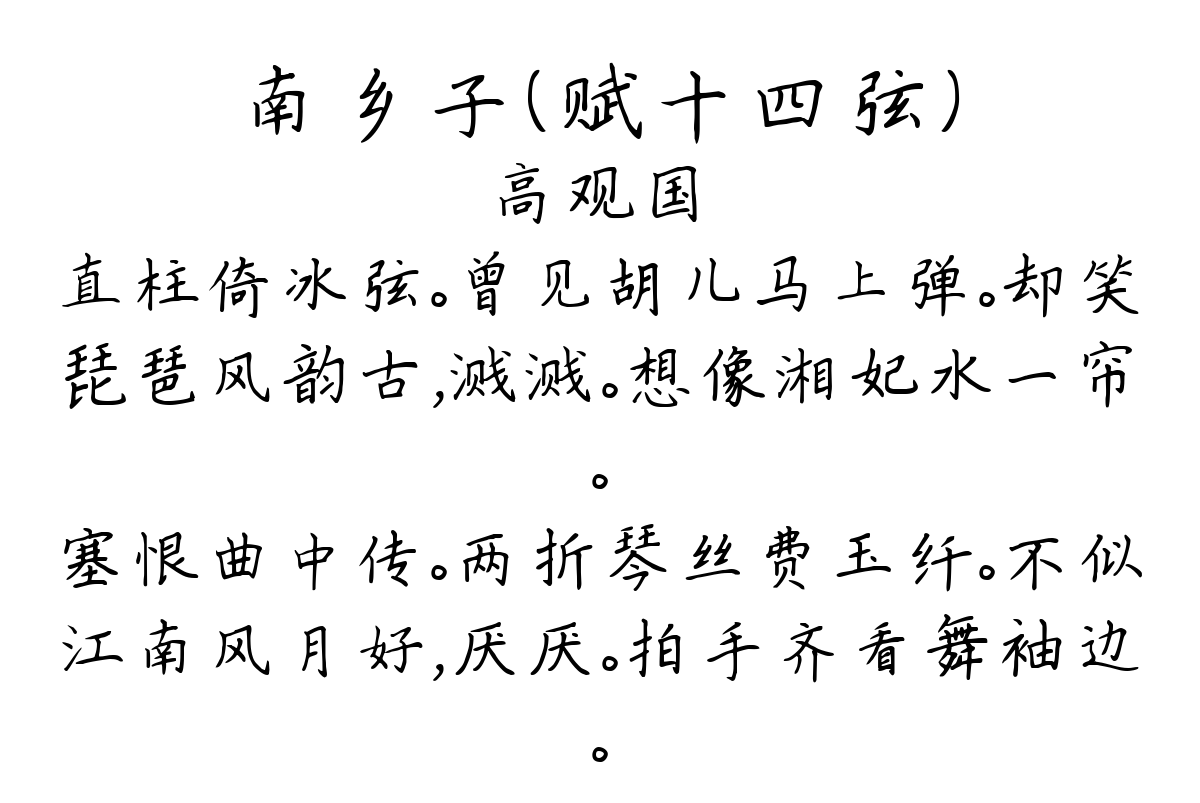 南乡子(赋十四弦)
高观国
直柱倚冰弦。曾见胡儿马上弹。却笑
琵琶风韵古,溅溅。想像湘妃水一帘
。
塞恨曲中传。两折琴丝费玉纤。不似
江南风月好,厌厌。拍手齐看舞袖边
。